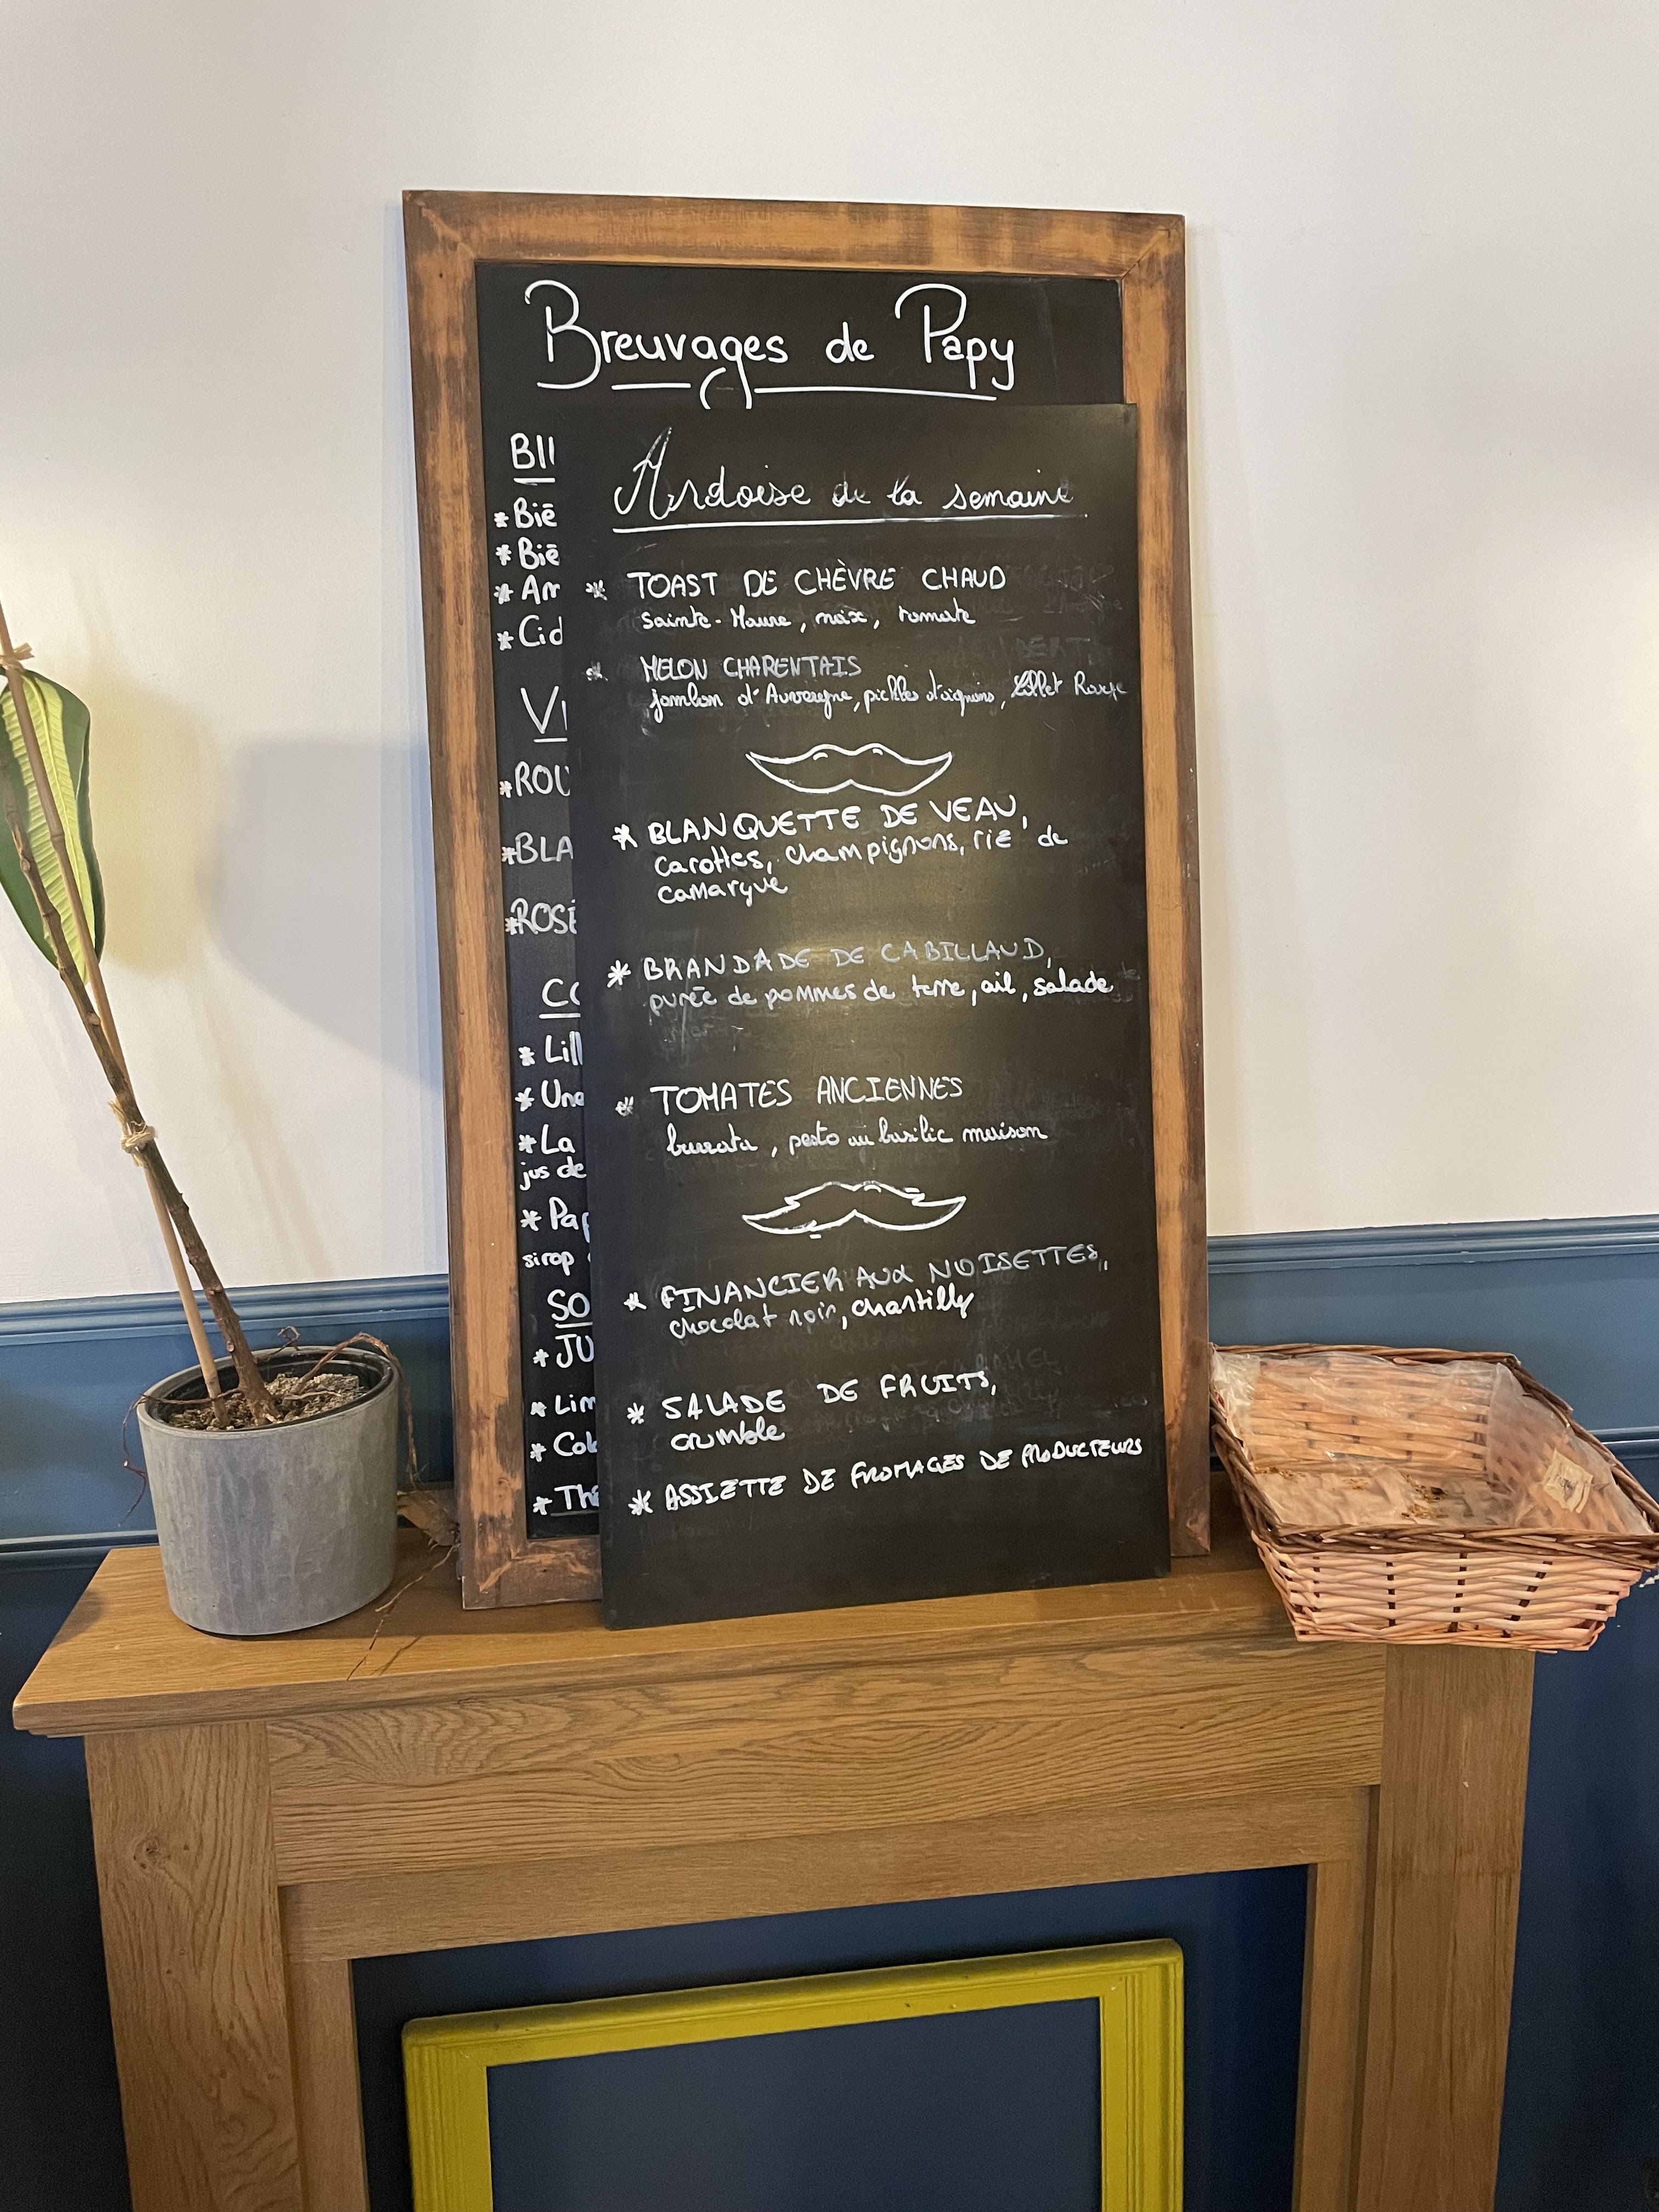 Breuvages de Papy
BI
* Biè
* Biè
* Am
* Cid
VI
* ROU
* BLA
* ROSÉ
CO
* Lill
* Une
* La
jus de
* Pap
sirop
SO
* JU
* Lim
* Col
* Thé
Ardoise de la semaine
* TOAST DE CHÈVRE CHAUD
Sainte-Maure, noix, tomate
* MELON CHARENTAIS
jambon d'Auvergne, pickles d'oignons, Lillet Rouge
* BLANQUETTE DE VEAU,
carottes, champignons, riz de
camargue
* BRANDADE DE CABILLAUD,
purée de pommes de terre, ail, salade
* TOMATES ANCIENNES
burrata, pesto au basilic maison
* FINANCIER AUX NOISETTES,
chocolat noir, chantilly
* SALADE DE FRUITS,
crumble
* ASSIETTE DE FROMAGES DE PRODUCTEURS